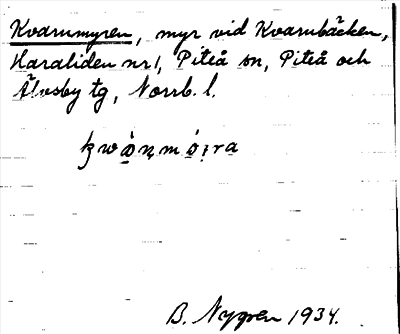 Kvarnmyren, myr vid Kvarnbäcken,
Haraliden nr 1, Piteå sn, Piteå och
Älvsby tg, Norrb. l.
B. Nygren 1934.